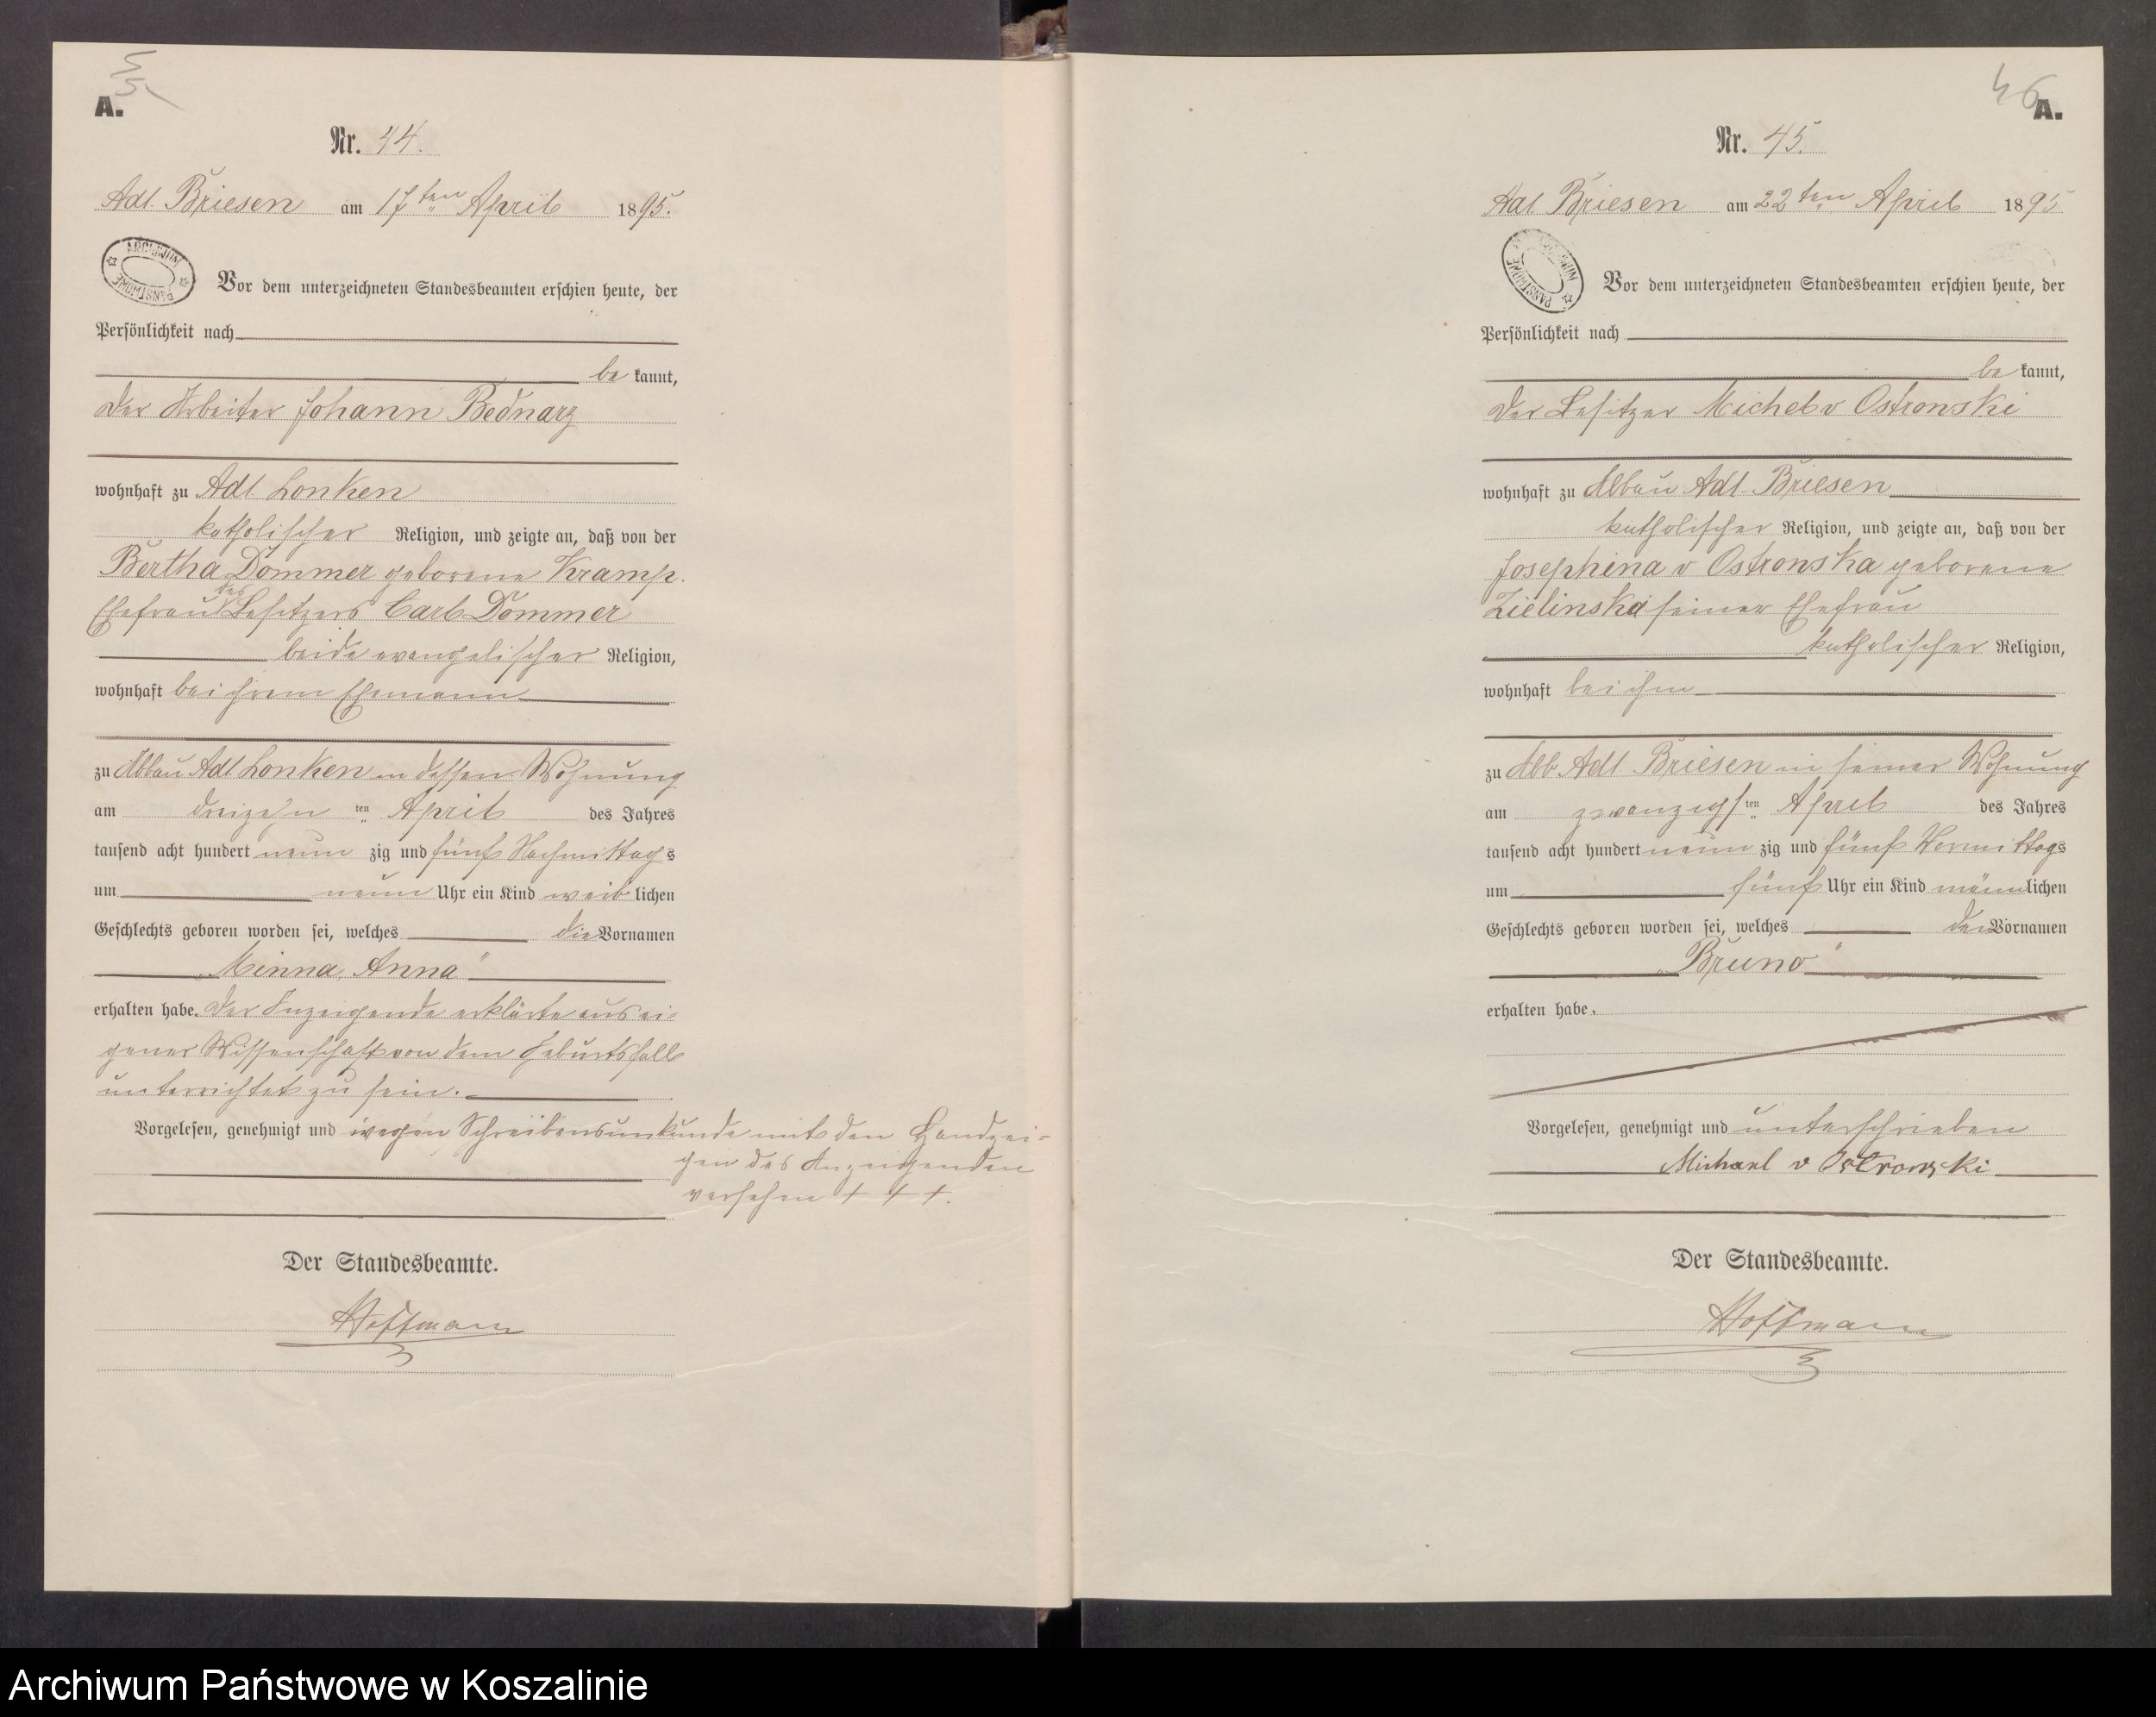 A.
Nr. 44.
Adl. Briesen am 17ten April 1895.
ARCHIWUM PAŃSTWOWE
Vor dem unterzeichneten Standesbeamten erschien heute, der
Persönlichkeit nach
be kannt,
der Arbeiter Johann Bednarz
wohnhaft zu Adl. Lonken
katholischer Religion, und zeigte an, daß von der
Bertha Dommer geborene Kramp.
Ehefrau des Besitzers Carl Dommer
beide evangelischer Religion,
wohnhaft bei ihrem Ehemann
zu Abbau Adl. Lonken in dessen Wohnung
am dreizehn ten April des Jahres
tausend acht hundert neun zig und fünf Nachmittags
um neun Uhr ein Kind weib lichen
Geschlechts geboren worden sei, welches die Vornamen
„Minna, Anna"
erhalten habe. Der Anzeigende erklärte aus ei-
gener Wissenschaft von dem Geburtsfall
unterrichtet zu sein.
Vorgelesen, genehmigt und wegen Schreibensunkunde mit den Handzei-
gen des Anzeigenden
versehen + + +.
Der Standesbeamte.
Hoffmann
46
A.
Nr. 45.
Adl Briesen am 22ten April 1895
ARCHIWUM PAŃSTWOWE
Vor dem unterzeichneten Standesbeamten erschien heute, der
Persönlichkeit nach
be kannt,
der Besitzer Michel v Ostronski
wohnhaft zu Abbau Adl. Briesen
katholischer Religion, und zeigte an, daß von der
Josephina v Ostronska geborene
Zielinska seiner Ehefrau
katholischer Religion,
wohnhaft bei ihm
zu Abb. Adl. Briesen in seiner Wohnung
am zwanzigs ten April des Jahres
tausend acht hundert neun zig und fünf Vormittags
um fünf Uhr ein Kind männlichen
Geschlechts geboren worden sei, welches den Vornamen
„Bruno"
erhalten habe.
Vorgelesen, genehmigt und unterschrieben
Michael v Ostronski
Der Standesbeamte.
Hoffmann
Archiwum Państwowe w Koszalinie